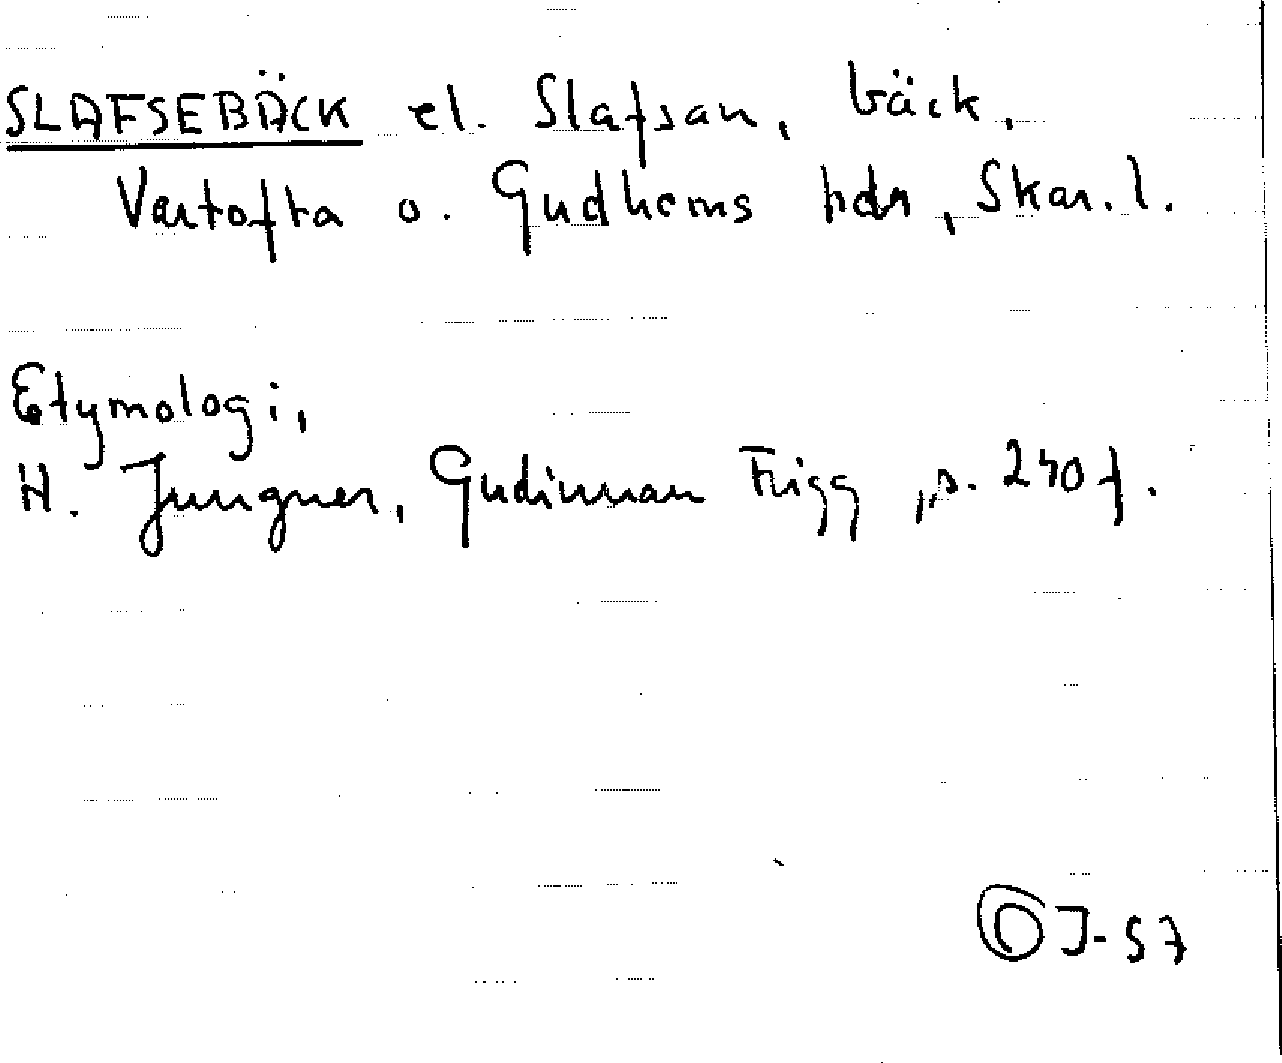 SLAFSEBÄCK el. Slafsan, bäck,
Vartofta o. Gudhems hdr, Skar. l.
Etymologi,
H. Jungner, Gudinnan Frigg, s. 240 f.
J-57